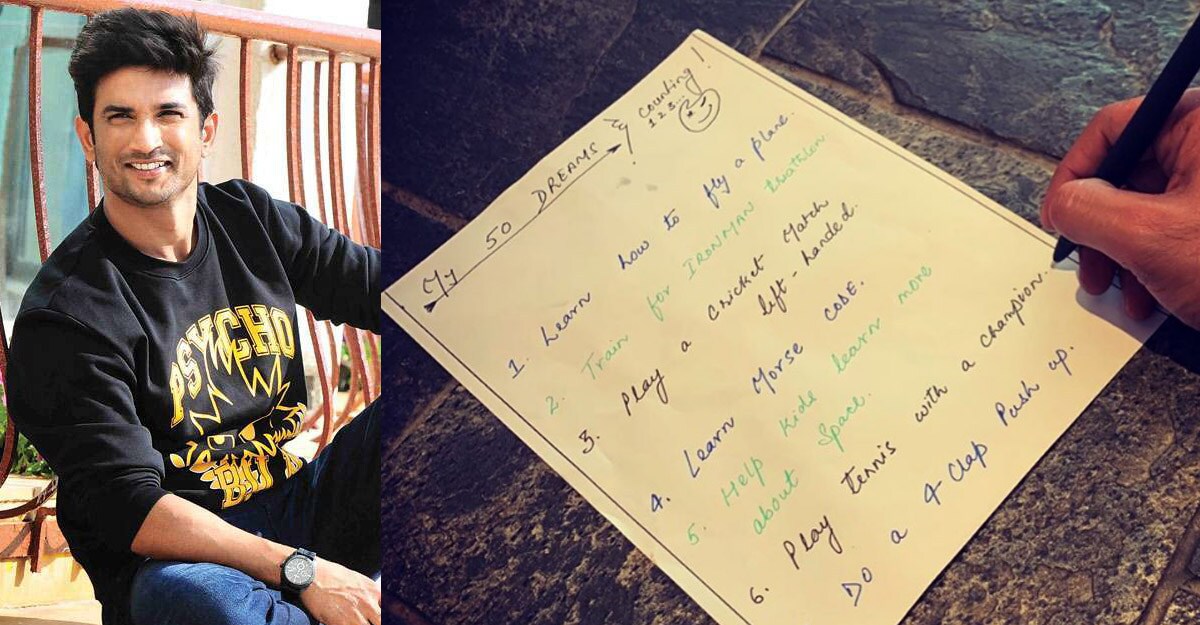 PSYCHO
My 50 DREAMS & Counting!
1 2 3...
1. Learn how to fly a plane.
2. Train for IRONMAN triathlon
3. Play a cricket Match
left-handed.
4. Learn Morse CODE.
5. Help kids learn more
about Space.
6. Play tennis with a champion.
Do a 4 Clap Push up.